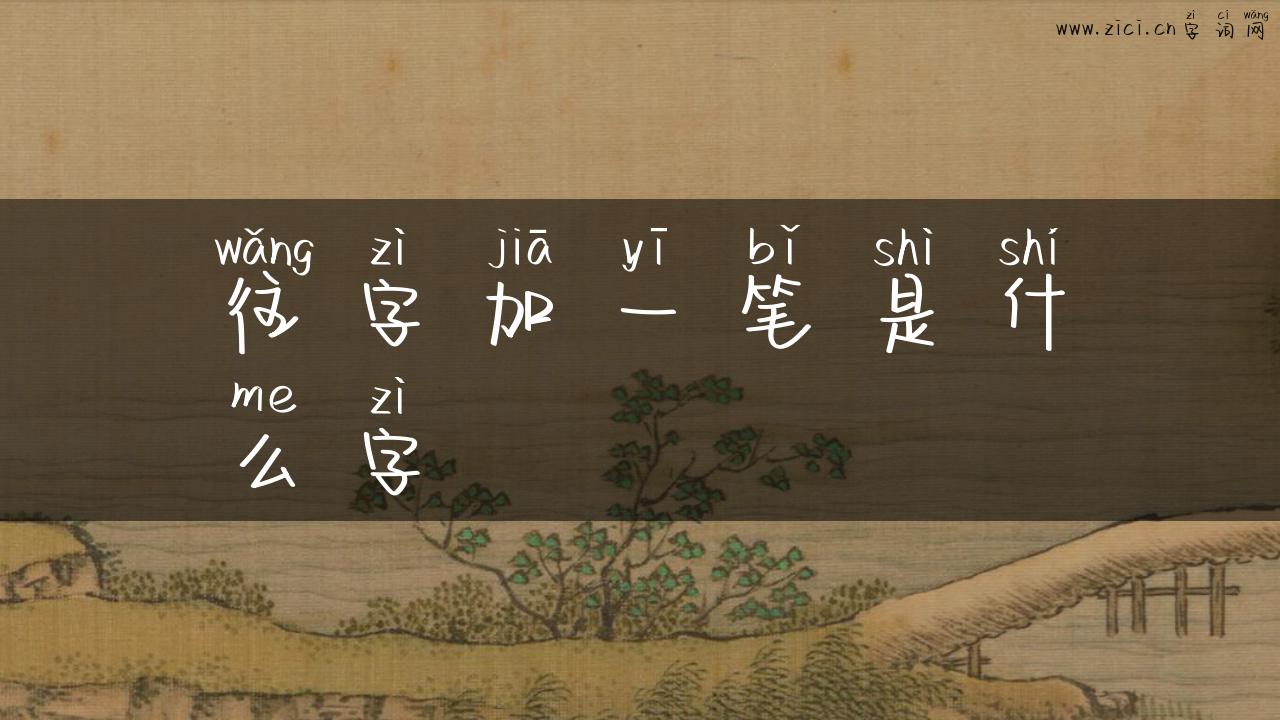 zì cí wǎng
www.zici.cn 字 词 网
wǎng zì jiā yī bǐ shì shí
往 字 加 一 笔 是 什
me zì
么 字